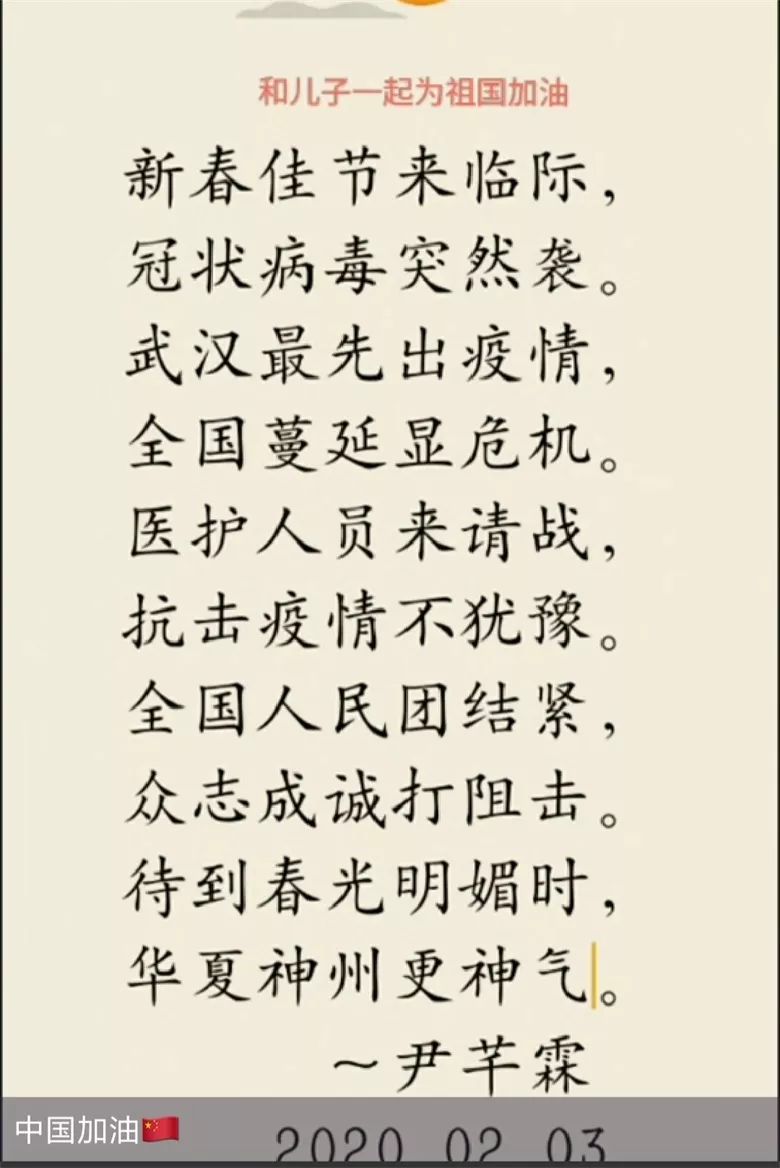 和儿子一起为祖国加油
新春佳节来临际，
冠状病毒突然袭。
武汉最先出疫情，
全国蔓延显危机。
医护人员来请战，
抗击疫情不犹豫。
全国人民团结紧，
众志成诚打阻击。
待到春光明媚时，
华夏神州更神气。
~尹芊霖
中国加油🇨🇳
2020 02 03